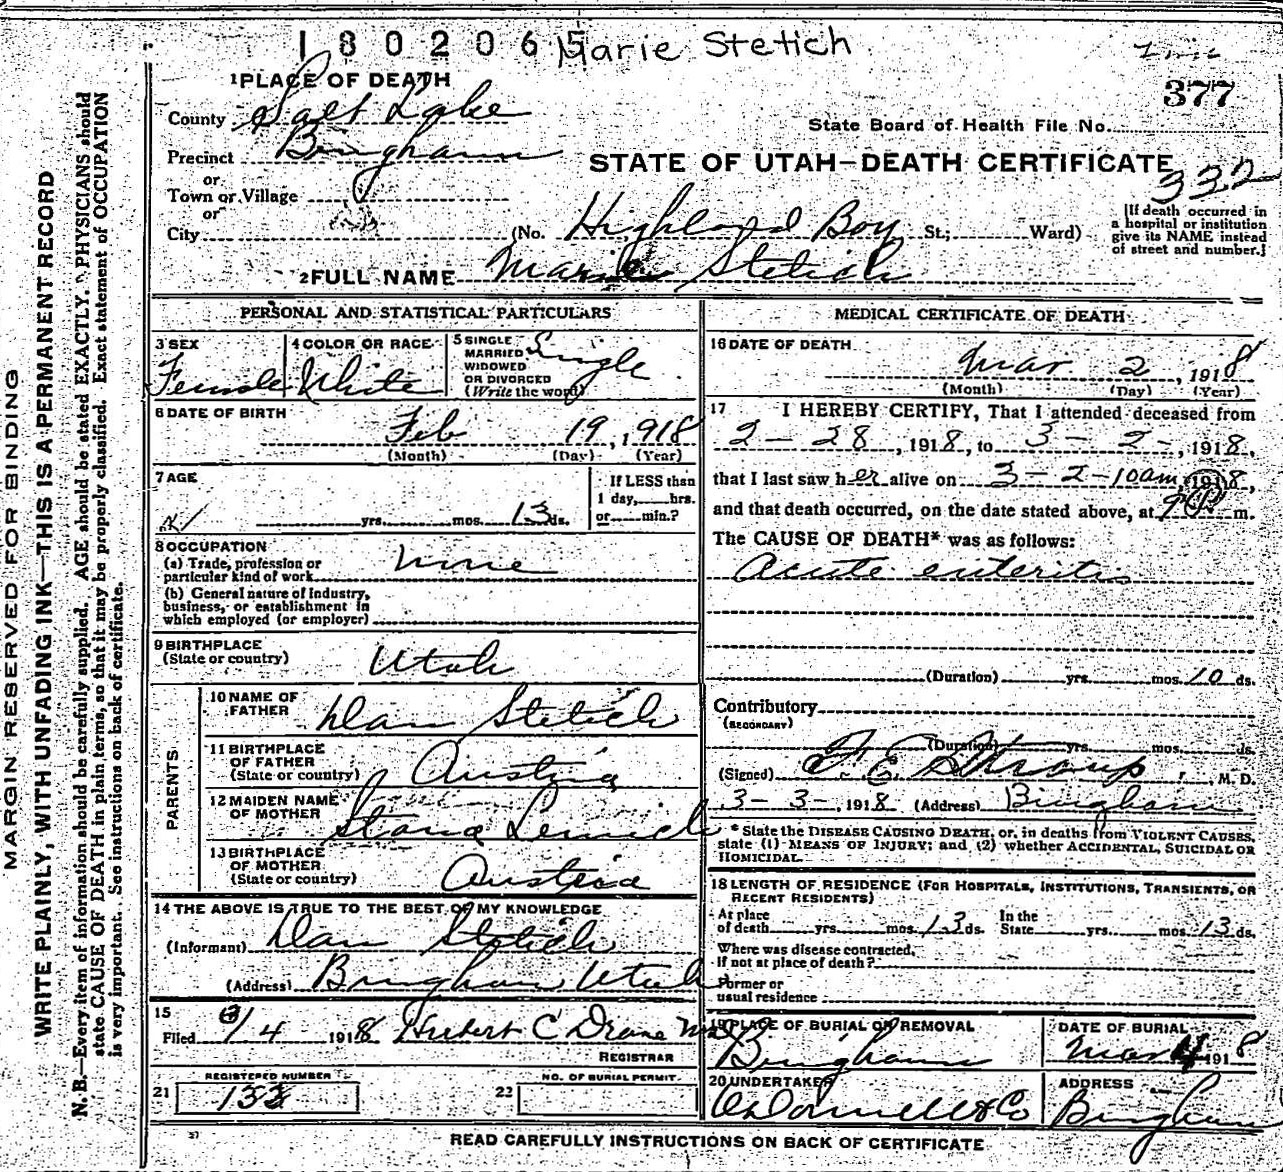 1802065 Marie Stetich
377
1 PLACE OF DEATH
County Salt Lake
State Board of Health File No.
Precinct Bingham
STATE OF UTAH—DEATH CERTIFICATE
332
or
Town or Village
or
City (No. Highland Boy St.; Ward)
[If death occurred in
a hospital or institution
give its NAME instead
of street and number.]
2 FULL NAME Marie Stetich
PERSONAL AND STATISTICAL PARTICULARS
3 SEX Female
4 COLOR OR RACE White
5 SINGLE
MARRIED
WIDOWED
OR DIVORCED
(Write the word) Single
6 DATE OF BIRTH
Feb 19, 1918
(Month) (Day) (Year)
7 AGE
yrs. mos. 13 ds.
If LESS than
1 day, hrs.
or min.?
8 OCCUPATION
(a) Trade, profession or
particular kind of work none
(b) General nature of Industry,
business, or establishment in
which employed (or employer)
9 BIRTHPLACE
(State or country) Utah
PARENTS
10 NAME OF
FATHER Dan Stetich
11 BIRTHPLACE
OF FATHER
(State or country) Austria
12 MAIDEN NAME
OF MOTHER Stana
13 BIRTHPLACE
OF MOTHER
(State or country) Austria
14 THE ABOVE IS TRUE TO THE BEST OF MY KNOWLEDGE
(Informant) Dan Stetich
(Address) Bingham Utah
15
Filed 3/4 1918 Hubert C Drane MD
REGISTRAR
REGISTERED NUMBER
21 133
NO. OF BURIAL PERMIT
22
MEDICAL CERTIFICATE OF DEATH
16 DATE OF DEATH
Mar 2, 1918
(Month) (Day) (Year)
17 I HEREBY CERTIFY, That I attended deceased from
2-28, 1918, to 3-2-, 1918,
that I last saw her alive on 3-2-10am, 1918,
and that death occurred, on the date stated above, at 9 P m.
The CAUSE OF DEATH* was as follows:
Acute enteritis
(Duration) yrs. mos. 10 ds.
Contributory
(SECONDARY)
(Duration) yrs. mos. ds.
(Signed) F. E. Straup, M. D.
3-3-, 1918 (Address) Bingham
* State the DISEASE CAUSING DEATH, or, in deaths from VIOLENT CAUSES,
state (1) MEANS OF INJURY; and (2) whether ACCIDENTAL, SUICIDAL OR
HOMICIDAL.
18 LENGTH OF RESIDENCE (FOR HOSPITALS, INSTITUTIONS, TRANSIENTS, OR
RECENT RESIDENTS)
At place
of death yrs. mos. 13 ds.
In the
State yrs. mos. 13 ds.
Where was disease contracted,
if not at place of death?
Former or
usual residence
19 PLACE OF BURIAL OR REMOVAL
Bingham
DATE OF BURIAL
Mar 4 1918
20 UNDERTAKER
O'Donnell & Co
ADDRESS
Bingham
READ CAREFULLY INSTRUCTIONS ON BACK OF CERTIFICATE
MARGIN RESERVED FOR BINDING
WRITE PLAINLY, WITH UNFADING INK—THIS IS A PERMANENT RECORD
N. B.—Every item of information should be carefully supplied. AGE should be stated EXACTLY. PHYSICIANS should
state CAUSE OF DEATH in plain terms, so that it may be properly classified. Exact statement of OCCUPATION
is very important. See instructions on back of certificate.